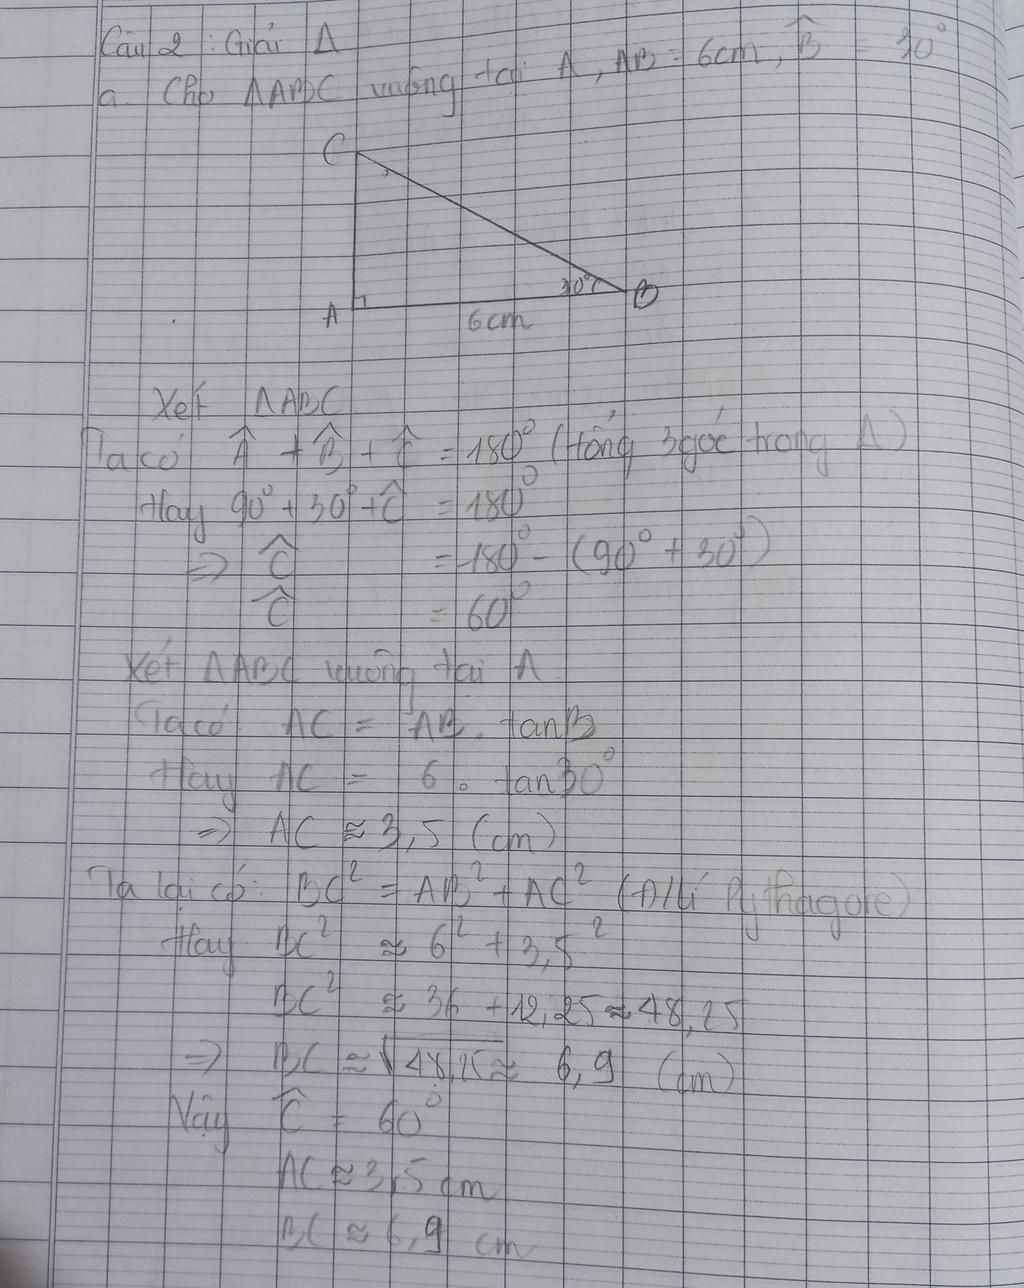 Câu 2: Giải Δ
a. Cho ΔABC vuông tại A, AB = 6cm, B̂ = 30°
C
30°
A
B
6cm
Xét ΔABC
Ta có Â + B̂ + Ĉ = 180° (tổng 3 góc trong Δ)
Hay 90° + 30° + Ĉ = 180°
=> Ĉ = 180° - (90° + 30°)
Ĉ = 60°
Xét ΔABC vuông tại A
Ta có AC = AB. tanB
Hay AC = 6. tan30°
=> AC ≈ 3,5 (cm)
Ta lại có: BC² = AB² + AC² (Đ/Lí Pythagore)
Hay BC² ≈ 6² + 3,5²
BC² ≈ 36 + 12,25 ≈ 48,25
=> BC ≈ √48,25 ≈ 6,9 (cm)
Vậy Ĉ = 60°
AC ≈ 3,5 cm
BC ≈ 6,9 cm